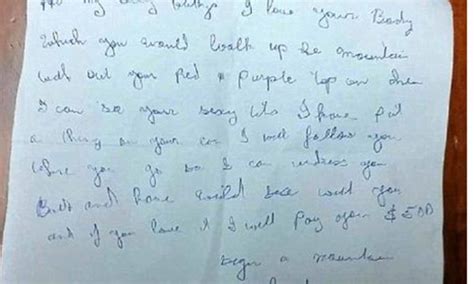 my sexy I love your Body
Which you would walk up the mountain
with out your Red & purple top on then
I can see your sexy tits I have put
a thing on your car I will follow you
where you go so I can undress you
and have wild sex with you
and if you love it I will pay you $500
sign a mountain